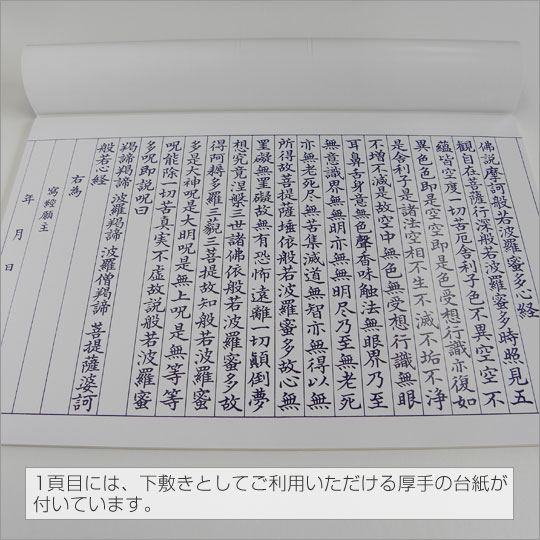 佛説摩訶般若波羅蜜多心経
観自在菩薩行深般若波羅蜜多時照見五
蘊皆空度一切苦厄舎利子色不異空空不
異色色即是空空即是色受想行識亦復如
是舎利子是諸法空相不生不滅不垢不浄
不増不減是故空中無色無受想行識無眼
耳鼻舌身意無色聲香味触法無眼界乃至
無意識界無無明亦無無明尽乃至無老死
亦無老死尽無苦集滅道無智亦無得以無
所得故菩提薩埵依般若波羅蜜多故心無
罣礙無罣礙故無有恐怖遠離一切顛倒夢
想究竟涅槃三世諸佛依般若波羅蜜多故
得阿耨多羅三藐三菩提故知般若波羅蜜
多是大神呪是大明呪是無上呪是無等等
呪能除一切苦真実不虚故説般若波羅蜜
多呪即説呪曰
羯諦羯諦 波羅羯諦 波羅僧羯諦 菩提薩婆訶
般若心経
右為
寫經願主
年 月 日
1頁目には、下敷きとしてご利用いただける厚手の台紙が
付いています。